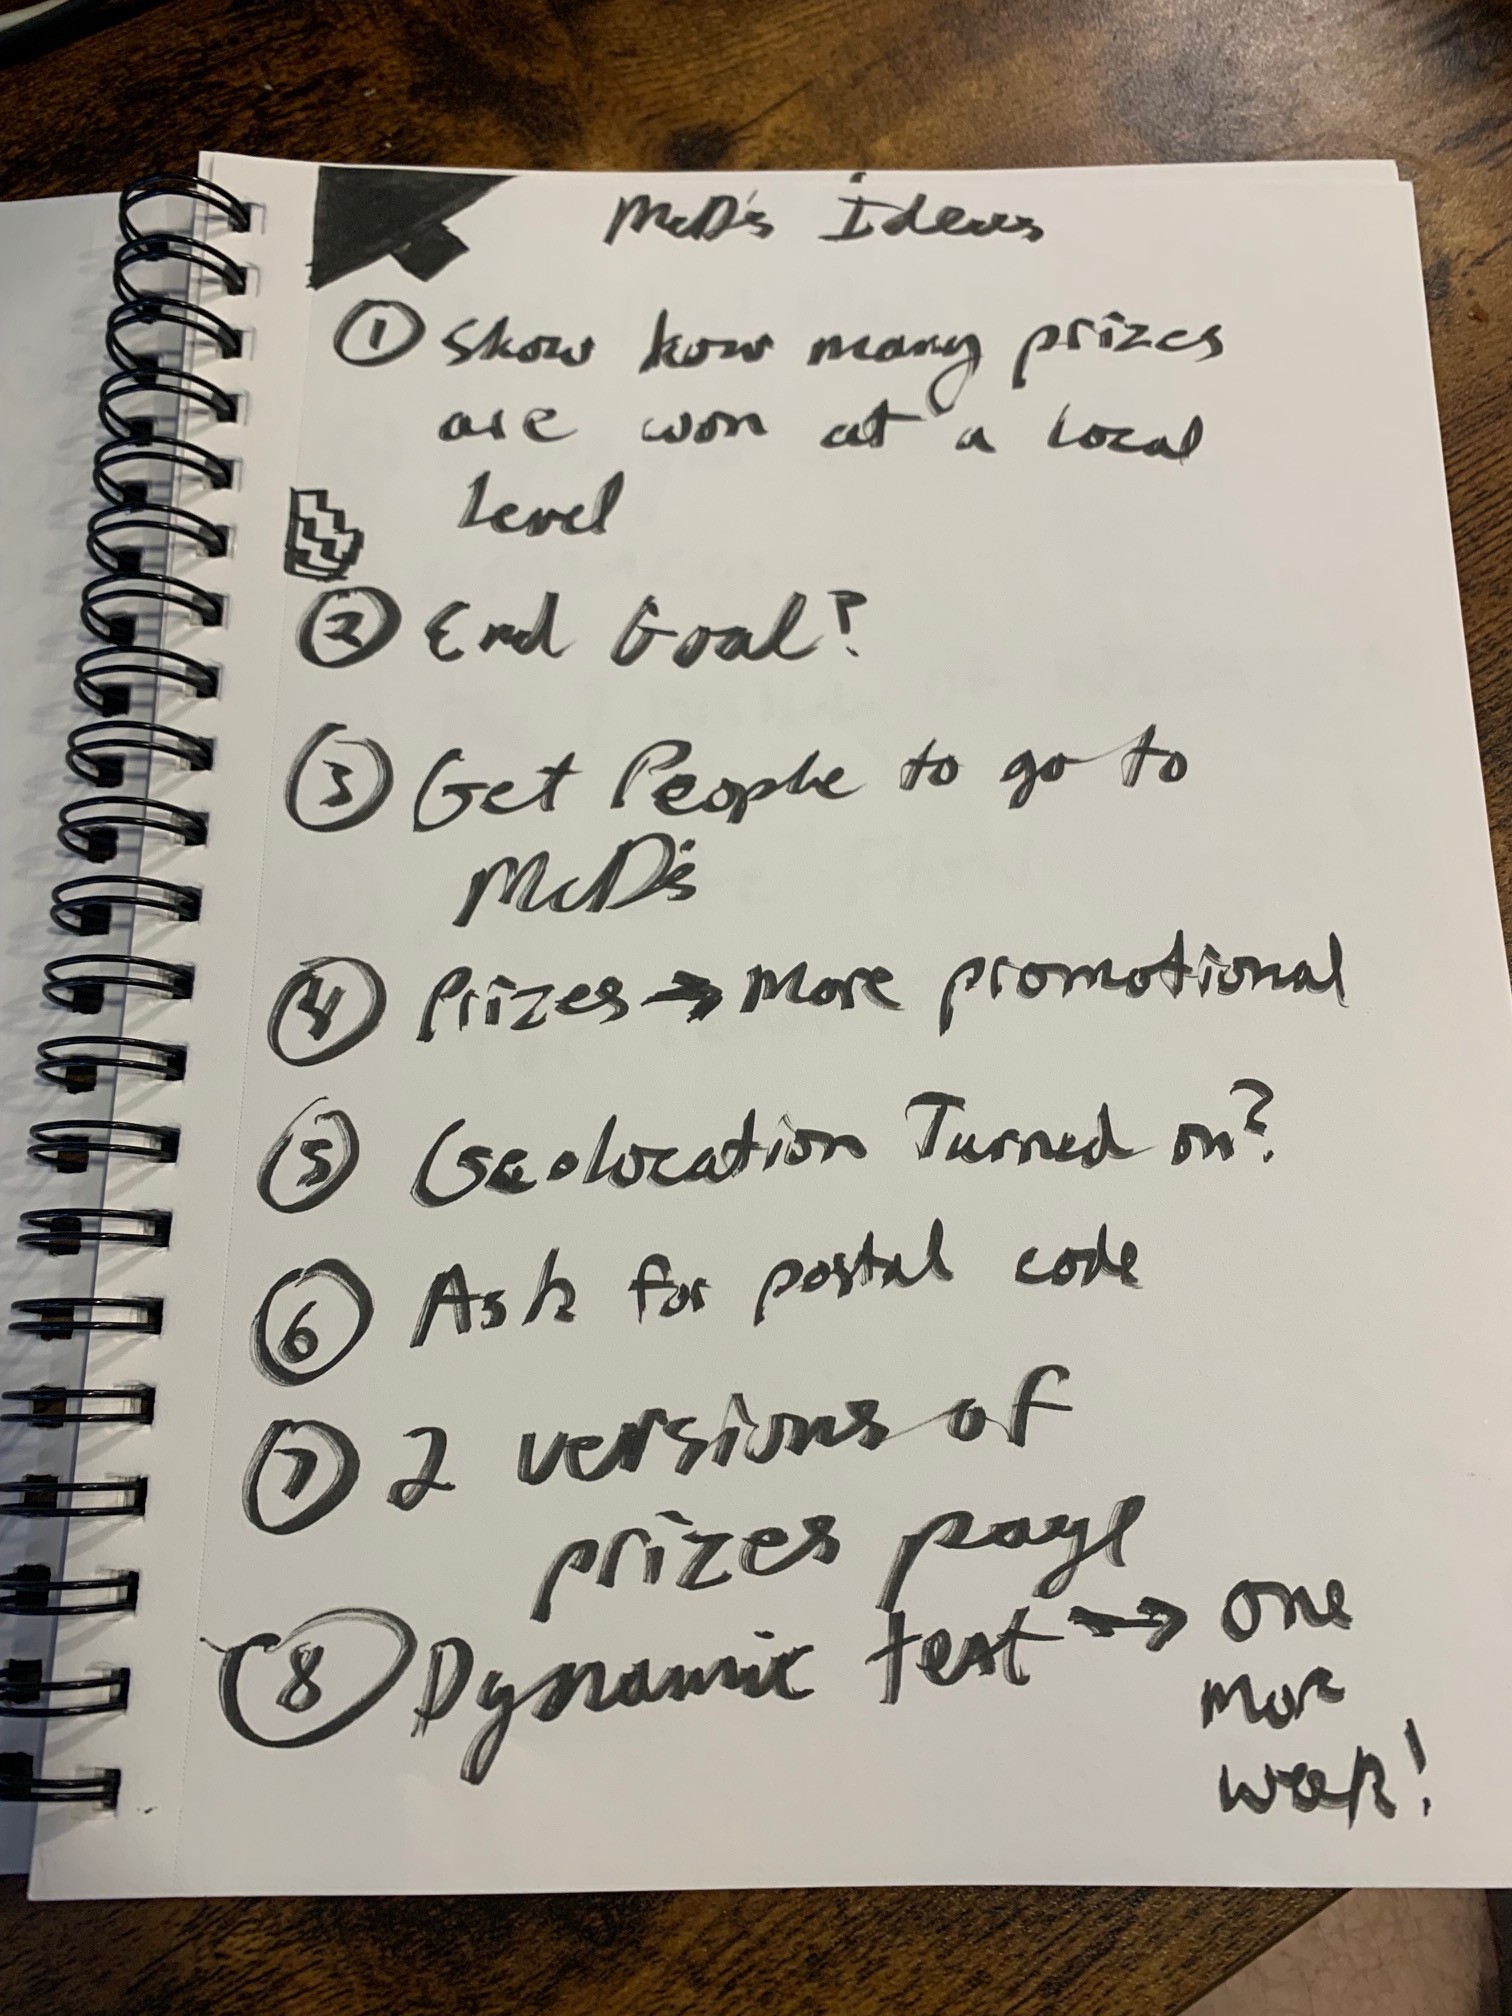 McD's Ideas
① Show how many prizes
are won at a local
level
② End Goal?
③ Get People to go to
McD's
④ Prizes → More promotional
⑤ Geolocation Turned on?
⑥ Ask for postal code
⑦ 2 versions of
prizes page
⑧ Dynamic text → one
more
week!